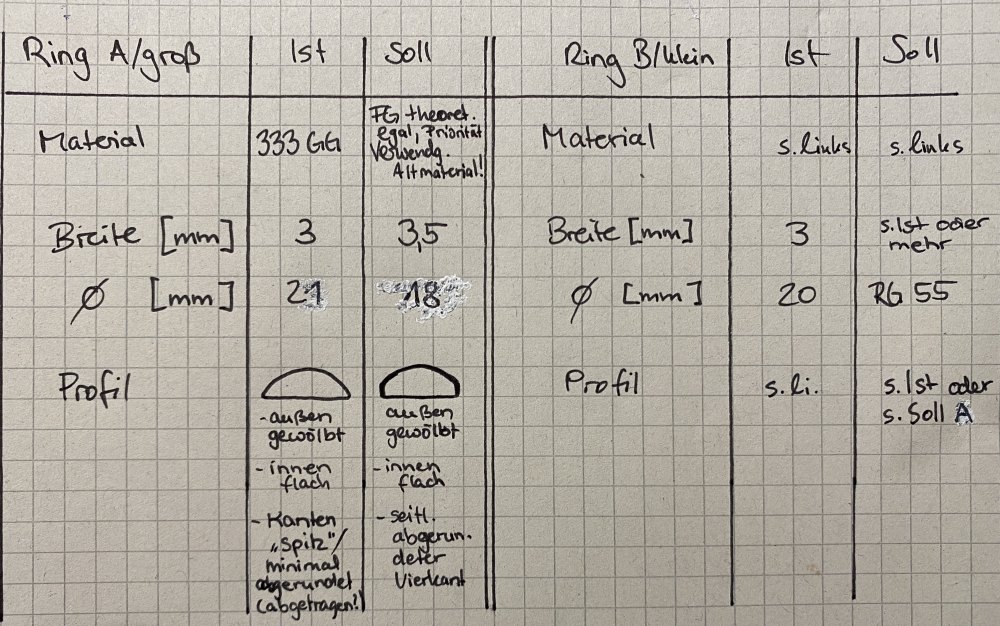 Ring A/groß Ist Soll Ring B/klein Ist Soll
Material 333 GG FG theoret. egal, Priorität Verwendg. Altmaterial! Material s. links s. links
Breite [mm] 3 3,5 Breite [mm] 3 s. Ist oder mehr
Ø [mm] 21 18 Ø [mm] 20 RG 55
Profil
- außen
gewölbt
- innen
flach
- Kanten
„spitz"/
minimal
abgerundet
(abgetragen!)
außen
gewölbt
- innen
flach
- seitl.
abgerun-
deter
Vierkant
Profil s. li. s. Ist oder
s. Soll A